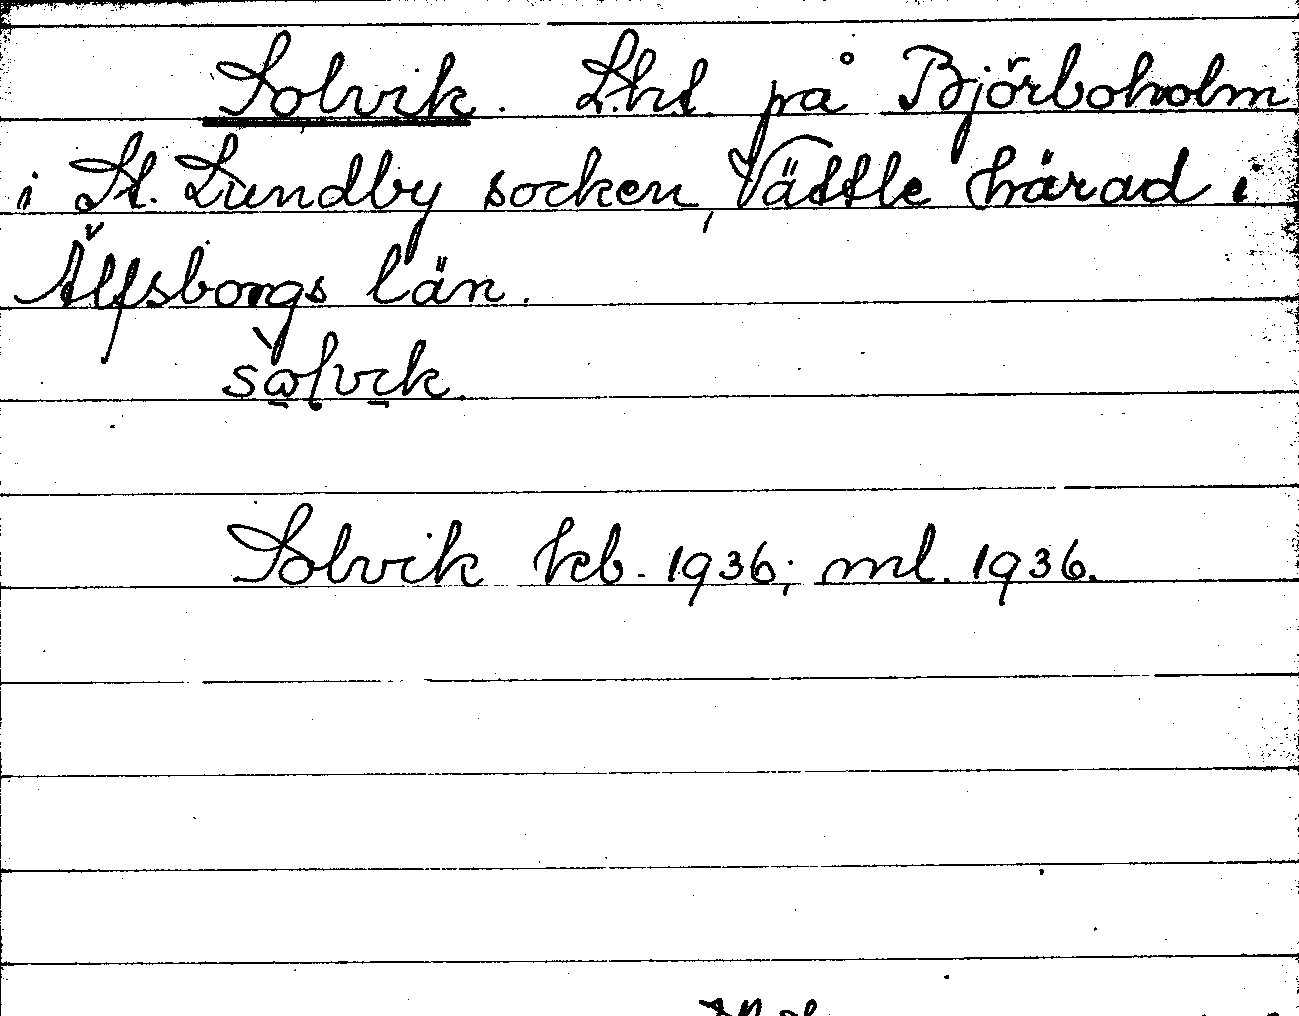 Solvik. L.ht. på Björboholm
i St. Lundby socken, Vättle härad i
Älfsborgs län.
Solvik kb. 1936; ml. 1936.